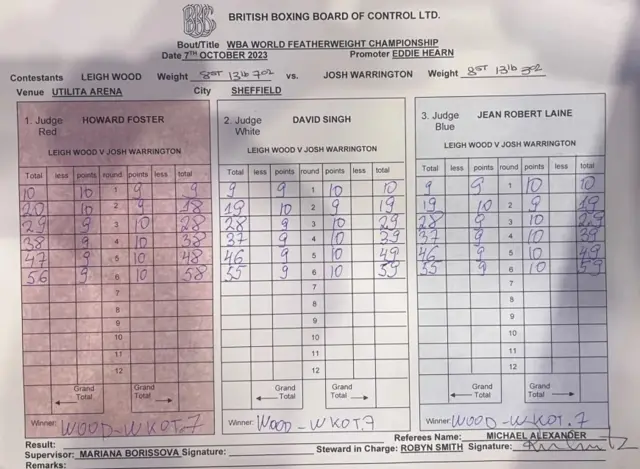 BRITISH BOXING BOARD OF CONTROL LTD.
Bout/Title WBA WORLD FEATHERWEIGHT CHAMPIONSHIP
Date 7TH OCTOBER 2023 Promoter EDDIE HEARN
Contestants LEIGH WOOD Weight 8ST 13lb 7oz vs. JOSH WARRINGTON Weight 8ST 13lb
Venue UTILITA ARENA City SHEFFIELD
1. Judge HOWARD FOSTER
Red
LEIGH WOOD V JOSH WARRINGTON
Total less points round less total
10 10 1 9 9
20 10 2 9 18
29 9 3 10 28
38 9 4 10 38
47 9 5 10 48
56 9 6 10 58
7
8
9
10
11
12
Grand Total Grand Total
Winner: WOOD - W KOT. 7
2. Judge DAVID SINGH
White
LEIGH WOOD V JOSH WARRINGTON
Total less points round points less total
9 9 1 10 10
19 10 2 9 19
28 9 3 10 29
37 9 4 10 39
46 9 5 10 49
55 9 6 10 59
7
8
9
10
11
12
Grand Total Grand Total
Winner: WOOD - W KOT. 7
3. Judge JEAN ROBERT LAINE
Blue
LEIGH WOOD V JOSH WARRINGTON
Total less points round points less total
9 9 1 10 10
19 10 2 9 19
28 9 3 10 29
37 9 4 10 39
46 9 5 10 49
55 9 6 10 59
7
8
9
10
11
12
Grand Total Grand Total
Winner: WOOD - W KOT. 7
Result: Referees Name: MICHAEL ALEXANDER
Supervisor: MARIANA BORISSOVA Signature: Steward in Charge: ROBYN SMITH Signature:
Remarks: